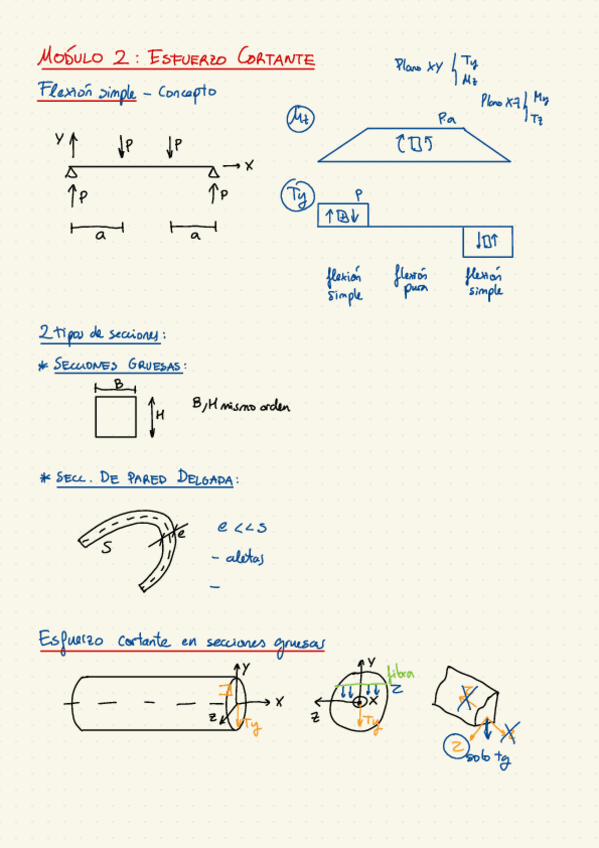 MÓDULO 2: ESFUERZO CORTANTE
Flexión simple - Concepto
Plano XY { Ty
Mz
Plano XZ { My
Tz
Mz
P.a
Y
P
P
X
P
P
a
a
Ty
P
flexión simple
flexión pura
flexión simple
2 tipos de secciones:
* SECCIONES GRUESAS:
B
H
B, H mismo orden
* SECC. DE PARED DELGADA:
e
S
e << s
- aletas
-
Esfuerzo cortante en secciones gruesas
Y
X
Z
Ty
Y
fibra
Z
X
Z
Ty
solo tg